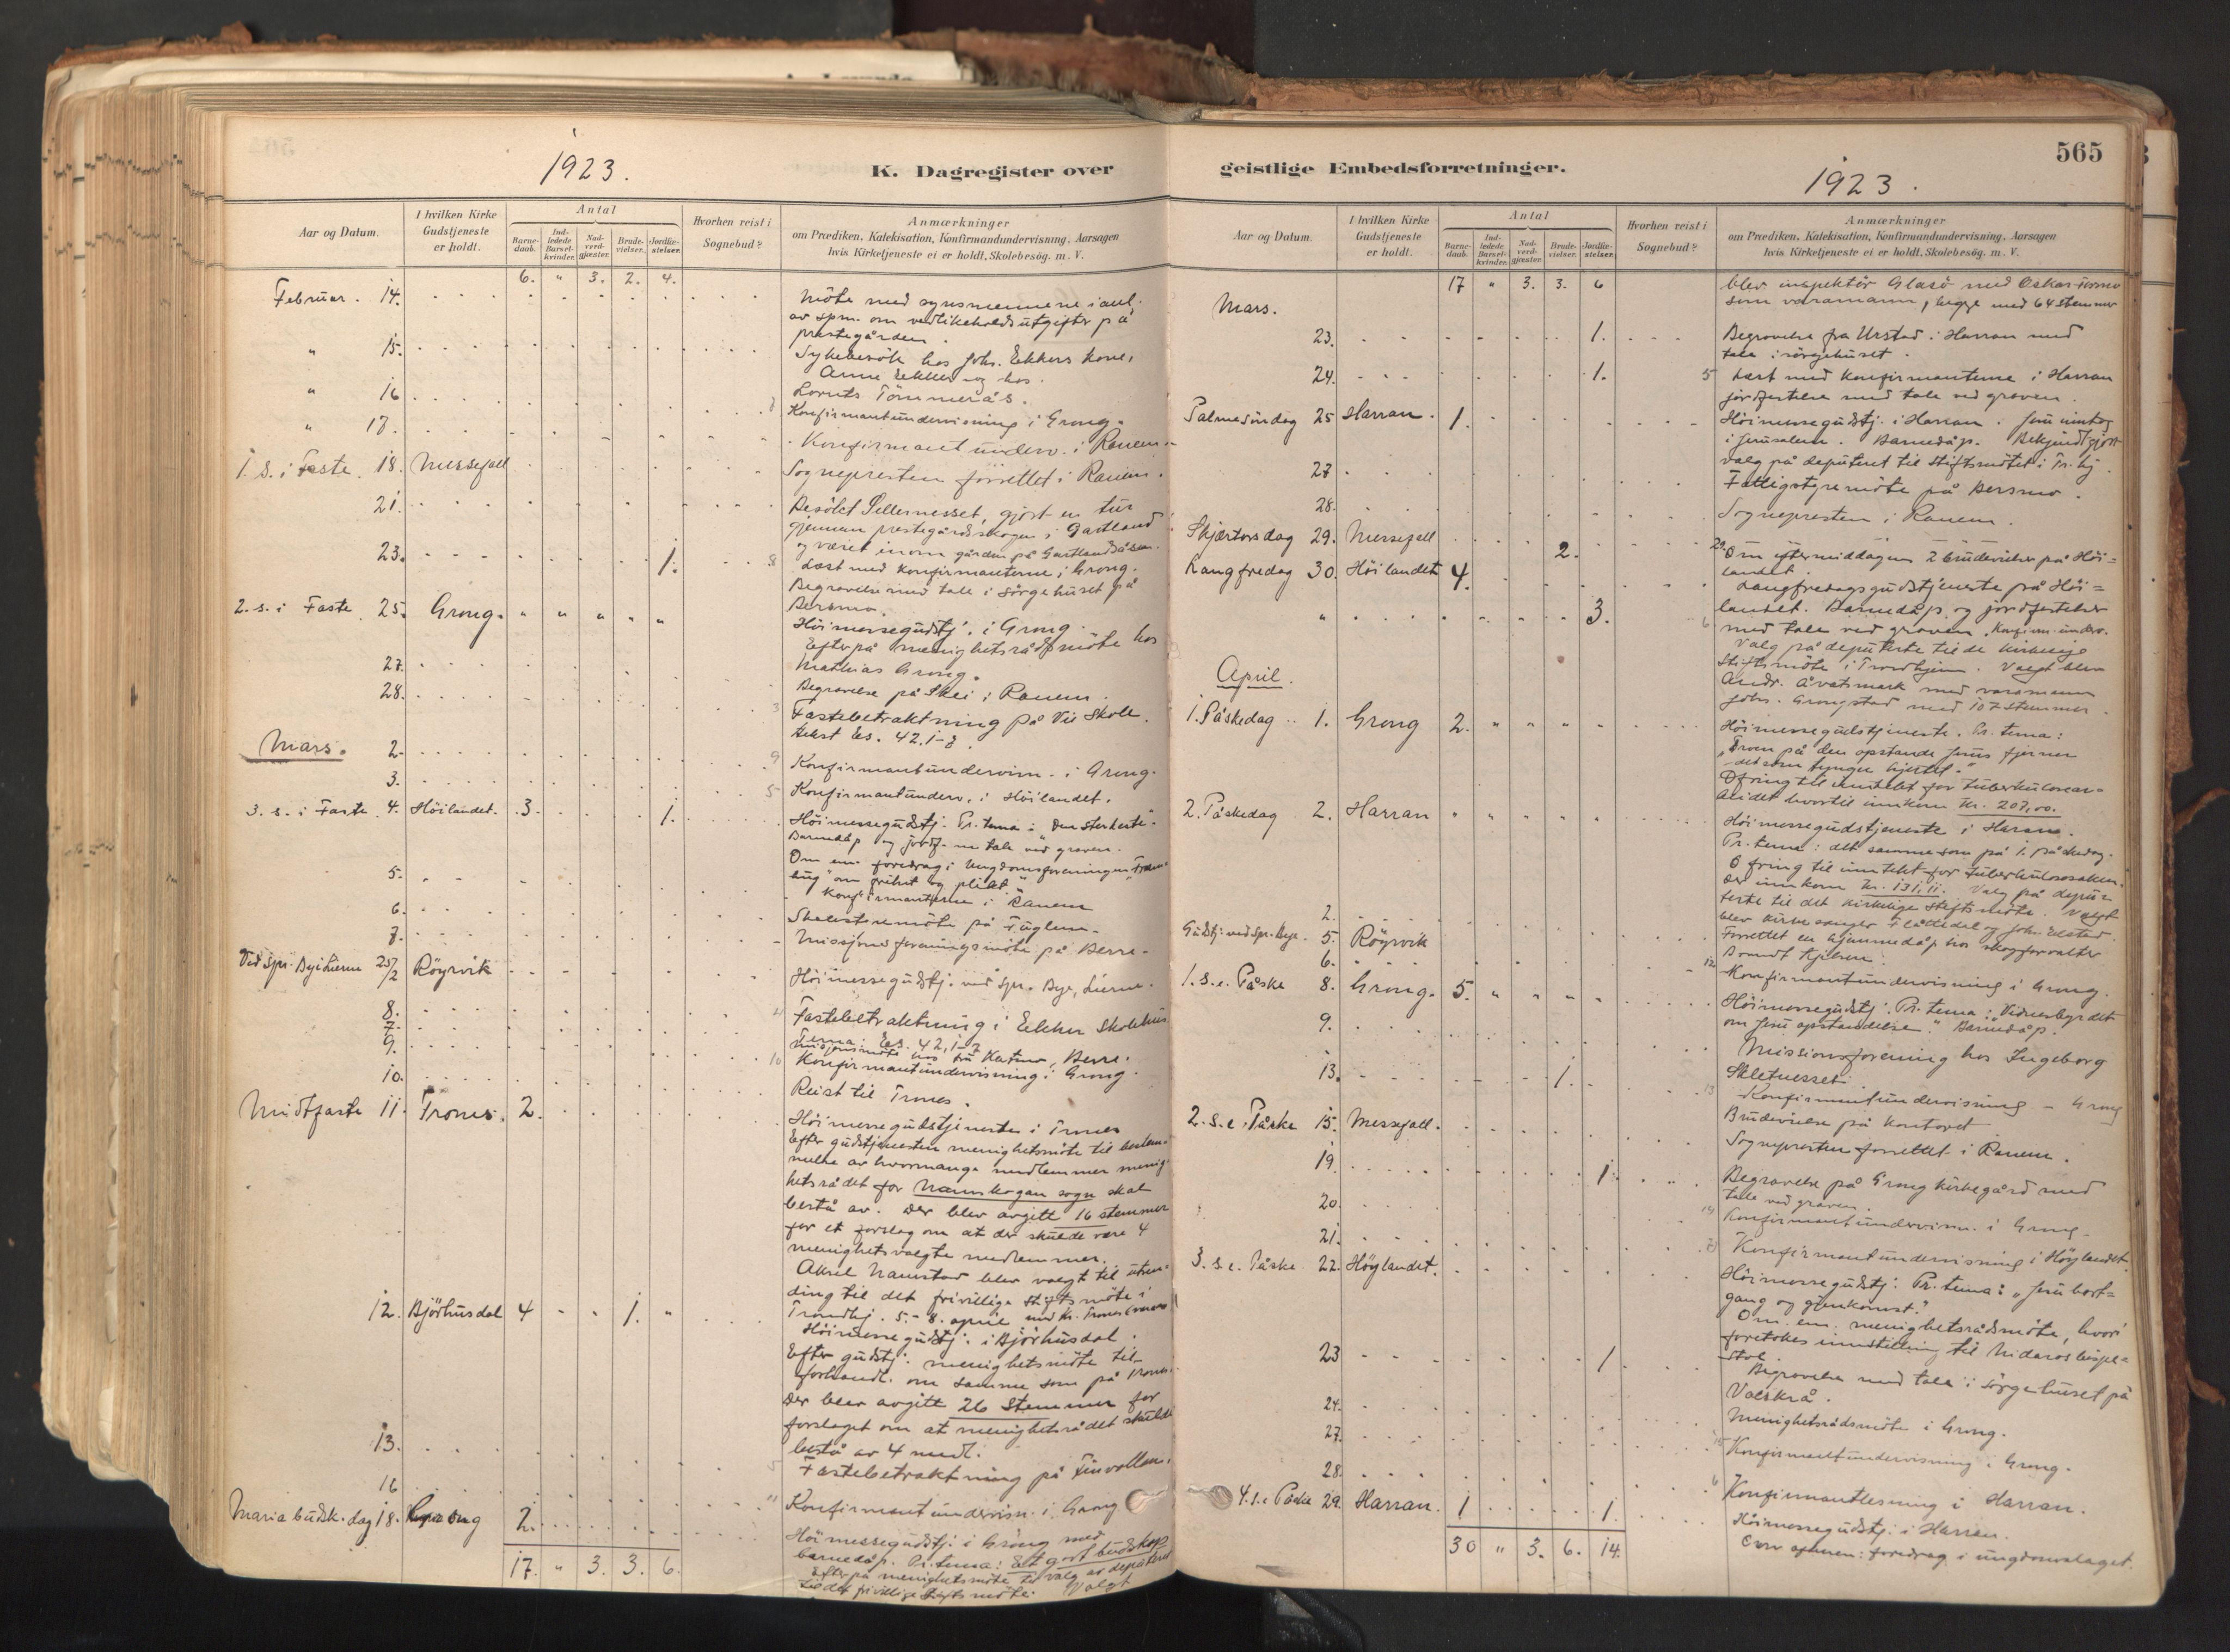 1923.
K. Dagregister over
Aar og Datum.
I hvilken Kirke Gudstjeneste er holdt.
Antal
Barne-daab.
Ind-ledede Barsel-kvinder.
Nad-verd-gjæster.
Brude-vielser.
Jordfæ-stelser.
Hvorhen reist i Sognebud?
Anmærkninger
om Prædiken, Katekisation, Konfirmandundervisning, Aarsagen
hvis Kirketjeneste ei er holdt, Skolebesøg. m. V.
6. " 3. 2. 4.
Februar. 14. Möte med synsmennene i anl.
av spm. om vedlikeholdsutgifter på
prestegården.
" 15. Sykebesök hos Johs. Ekkers kone,
Anne Ekker og hos
" 16 Lornts Tömmerås.
Konfirmantundervisning i Grong.
" 17. Konfirmantunderv. i Ranem.
1. S. i Faste. 18. Messefall Sognepresten forrettet i Ranem.
21. Besökt Sellernesset, gjort en tur
gjennem prestegårdsskogen i Gartland
og været innom gården på Gartlandsåsen.
23. 1. 8 Læst med konfirmantene i Grong.
Begravelse med tale i sörgehuset på
Bersmo.
2. s. i Faste. 25. Grong. " " " " " Höimessegudstj. i Grong.
Efterpå menighetsrådsmöte hos
Mathias Grong.
27. Begravelse på Skei i Ranem.
28. 3 Fastebetraktning på Vie Skole.
Tekst Es. 42.1-3.
Mars. 2. 9 Konfirmantundervisn. i Grong.
3. 5 Konfirmantunderv. i Höilandet.
3. s. i Faste. 4. Höilandet. 3. 1. Höimessegudstj. Pr. tema: "Den sterkeste".
Barnedåp og jordf. m tale ved graven.
5. Om em. foredrag i Ungdomsforeningen
om frihet og plikt.
6. Konfirmantene i Ranem
7. Skolestyremöte på Fuglem.
Missjonsforeningsmöte på Berre.
Ved Spr. Bye Lierne 25/2 Röyrvik Höimessegudstj. ved Spr. Bye, Lierne.
8. 4 Fastebetraktning i Ekker Skolehus
7. Tema: Es. 42,1-7
9. Misjonsmöte hos fru Katmo, Berre.
10 Konfirmantundervisning i Grong.
10. Reist til Trones.
Midtfaste 11. Trones. 2. Höimessegudstjeneste i Trones
Efter gudstjenesten menighetsmöte til bestem-
melse av hvormange medlemmer menig-
hetsrådet for Namskogan sogn skal
bestå av. Der blev avgitt 16 stemmer
for et forslag om at der skulde være 4
menighetsvalgte medlemmer.
Aksel Namstad blev valgt til utsen-
ding til det frivillige Stiftsmöte i
Trondhj. 5.-8. april med Kr. Trones
12. Björhusdal 4 - " 1. " Höimessegudstj. i Björhusdal.
Efter gudstj. menighetsmöte til
forhandl. om samme som på Trones.
Der blev avgitt 26 Stemmer for
forslaget om at menighetsrådet skulde
bestå av 4 medl.
13. 5 Fastebetraktning på Finvollen.
16 11 Konfirmantundervisn. i Grong
Maria budsk. dag 18. Grong 2. Höimessegudstj. i Grong med
barnedåp. Pr. tema: Et godt budskap
Efterpå menighetsmöte til valg av deputert
til det frivillige Stiftsmöte. Valgt
17. " 3. 3. 6.
geistlige Embedsforretninger.
1923.
565
Aar og Datum.
I hvilken Kirke Gudstjeneste er holdt.
Antal
Barne-daab.
Ind-ledede Barsel-kvinder.
Nad-verd-gjæster.
Brude-vielser.
Jordfæ-stelser.
Hvorhen reist i Sognebud?
Anmærkninger
om Prædiken, Katekisation, Konfirmandundervisning, Aarsagen
hvis Kirketjeneste ei er holdt, Skolebesøg. m. V.
17 " 3. 3. 6 blev inspektör Glasö med Oskar
som varamann, begge med 64 stemmer
Mars.
23. 1. Begravelse fra Urstad i Harran med
tale i sörgehuset.
24. 1. 5 Læst med Konfirmantene i Harran
jordfestelse med tale ved graven.
Palmesöndag 25 Harran. 1. Höimessegudstj. i Harran. Jesu inntog
i Jerusalem. Barnedåp. Bekjendtgjort
valg på deputeret til Stiftsmötet i Tr.hj.
27 Fattigstyremöte på Bersmo.
28. Sognepresten i Ranem.
Skjærtorsdag 29. Messefall 2. Om eftermiddagen 2 brudevielser på Höi-
landet.
Langfredag 30. Höilandet 4. Langfredagsgudstjeneste på Höi-
" 3. landet. Barnedåp og jordfestelser
6 med tale ved graven. Konfirm. underv.
Valg på deputerte til de kirkelige
Stiftsmöte i Trondhjem. Valgt blev
Andr. Åvatsmark med varamann
Johs. Grongstad med 107 stemmer.
April.
1. Påskedag 1. Grong 2. " " " " Höimessegudstjeneste. Pr. tema:
"Troen på den opstandne Jesus fjerner
det som tynger hjertet."
Ofring til inntekt for tuberkulosear-
beidet hvortil innkom kr. 207,00.
2. Påskedag 2. Harran " " " " " Höimessegudstjeneste i Harran.
Pr. tema: det samme som på 1. påskedag.
Ofring til inntekt for tuberkulosesaken.
Der innkom kr. 131,11. Valg på depu-
terte til det kirkelige Stiftsmöte. Valgt
blev kirkesanger Flåtedal og Joh. Elstad
2. Forrettet en hjemmedåp hos skogforvalter
Gudstj. ved Spr. Bye. 5. Röyrvik Brandt Kjelsen.
6. 12 Konfirmantundervisning i Grong.
1. S. e. Påske 8. Grong. 5. " " " " Höimessegudstj. Pr. tema: "Vidnesbyrdet
om Jesu opstandelse." Barnedåp.
9. Missionsforening hos Ingeborg
Skletnesset.
13. 1. 13 Konfirmantundervisning - Grong
Brudevielse på kontoret
2. s. e. Påske 15. Messefall. Sognepresten forrettet i Ranem.
19. 1. Begravelse på Grong kirkegård med
tale ved graven.
20. 14 Konfirmantundervisn. i Grong.
21. 7 Konfirmantundervisning i Höylandet
3. s. e. Påske 22. Höylandet. Höimessegudstj. Pr. tema: "Jesu bort-
gang og gjenkomst."
Om em. menighetsrådsmöte, hvori
foretokes innstilling til Nidaros bispe-
stol.
23 1. Begravelse med tale i sörgehuset på
Valskrå.
24. Menighetsrådsmöte i Grong.
27. 15 Konfirmantundervisning i Grong.
28. 6 Konfirmantlesning i Harran.
4. s. e. Påske 29. Harran. 1 1. Höimessegudstj. i Harran.
Om aftenen: foredrag i ungdomslaget.
30 " 3. 6. 14.